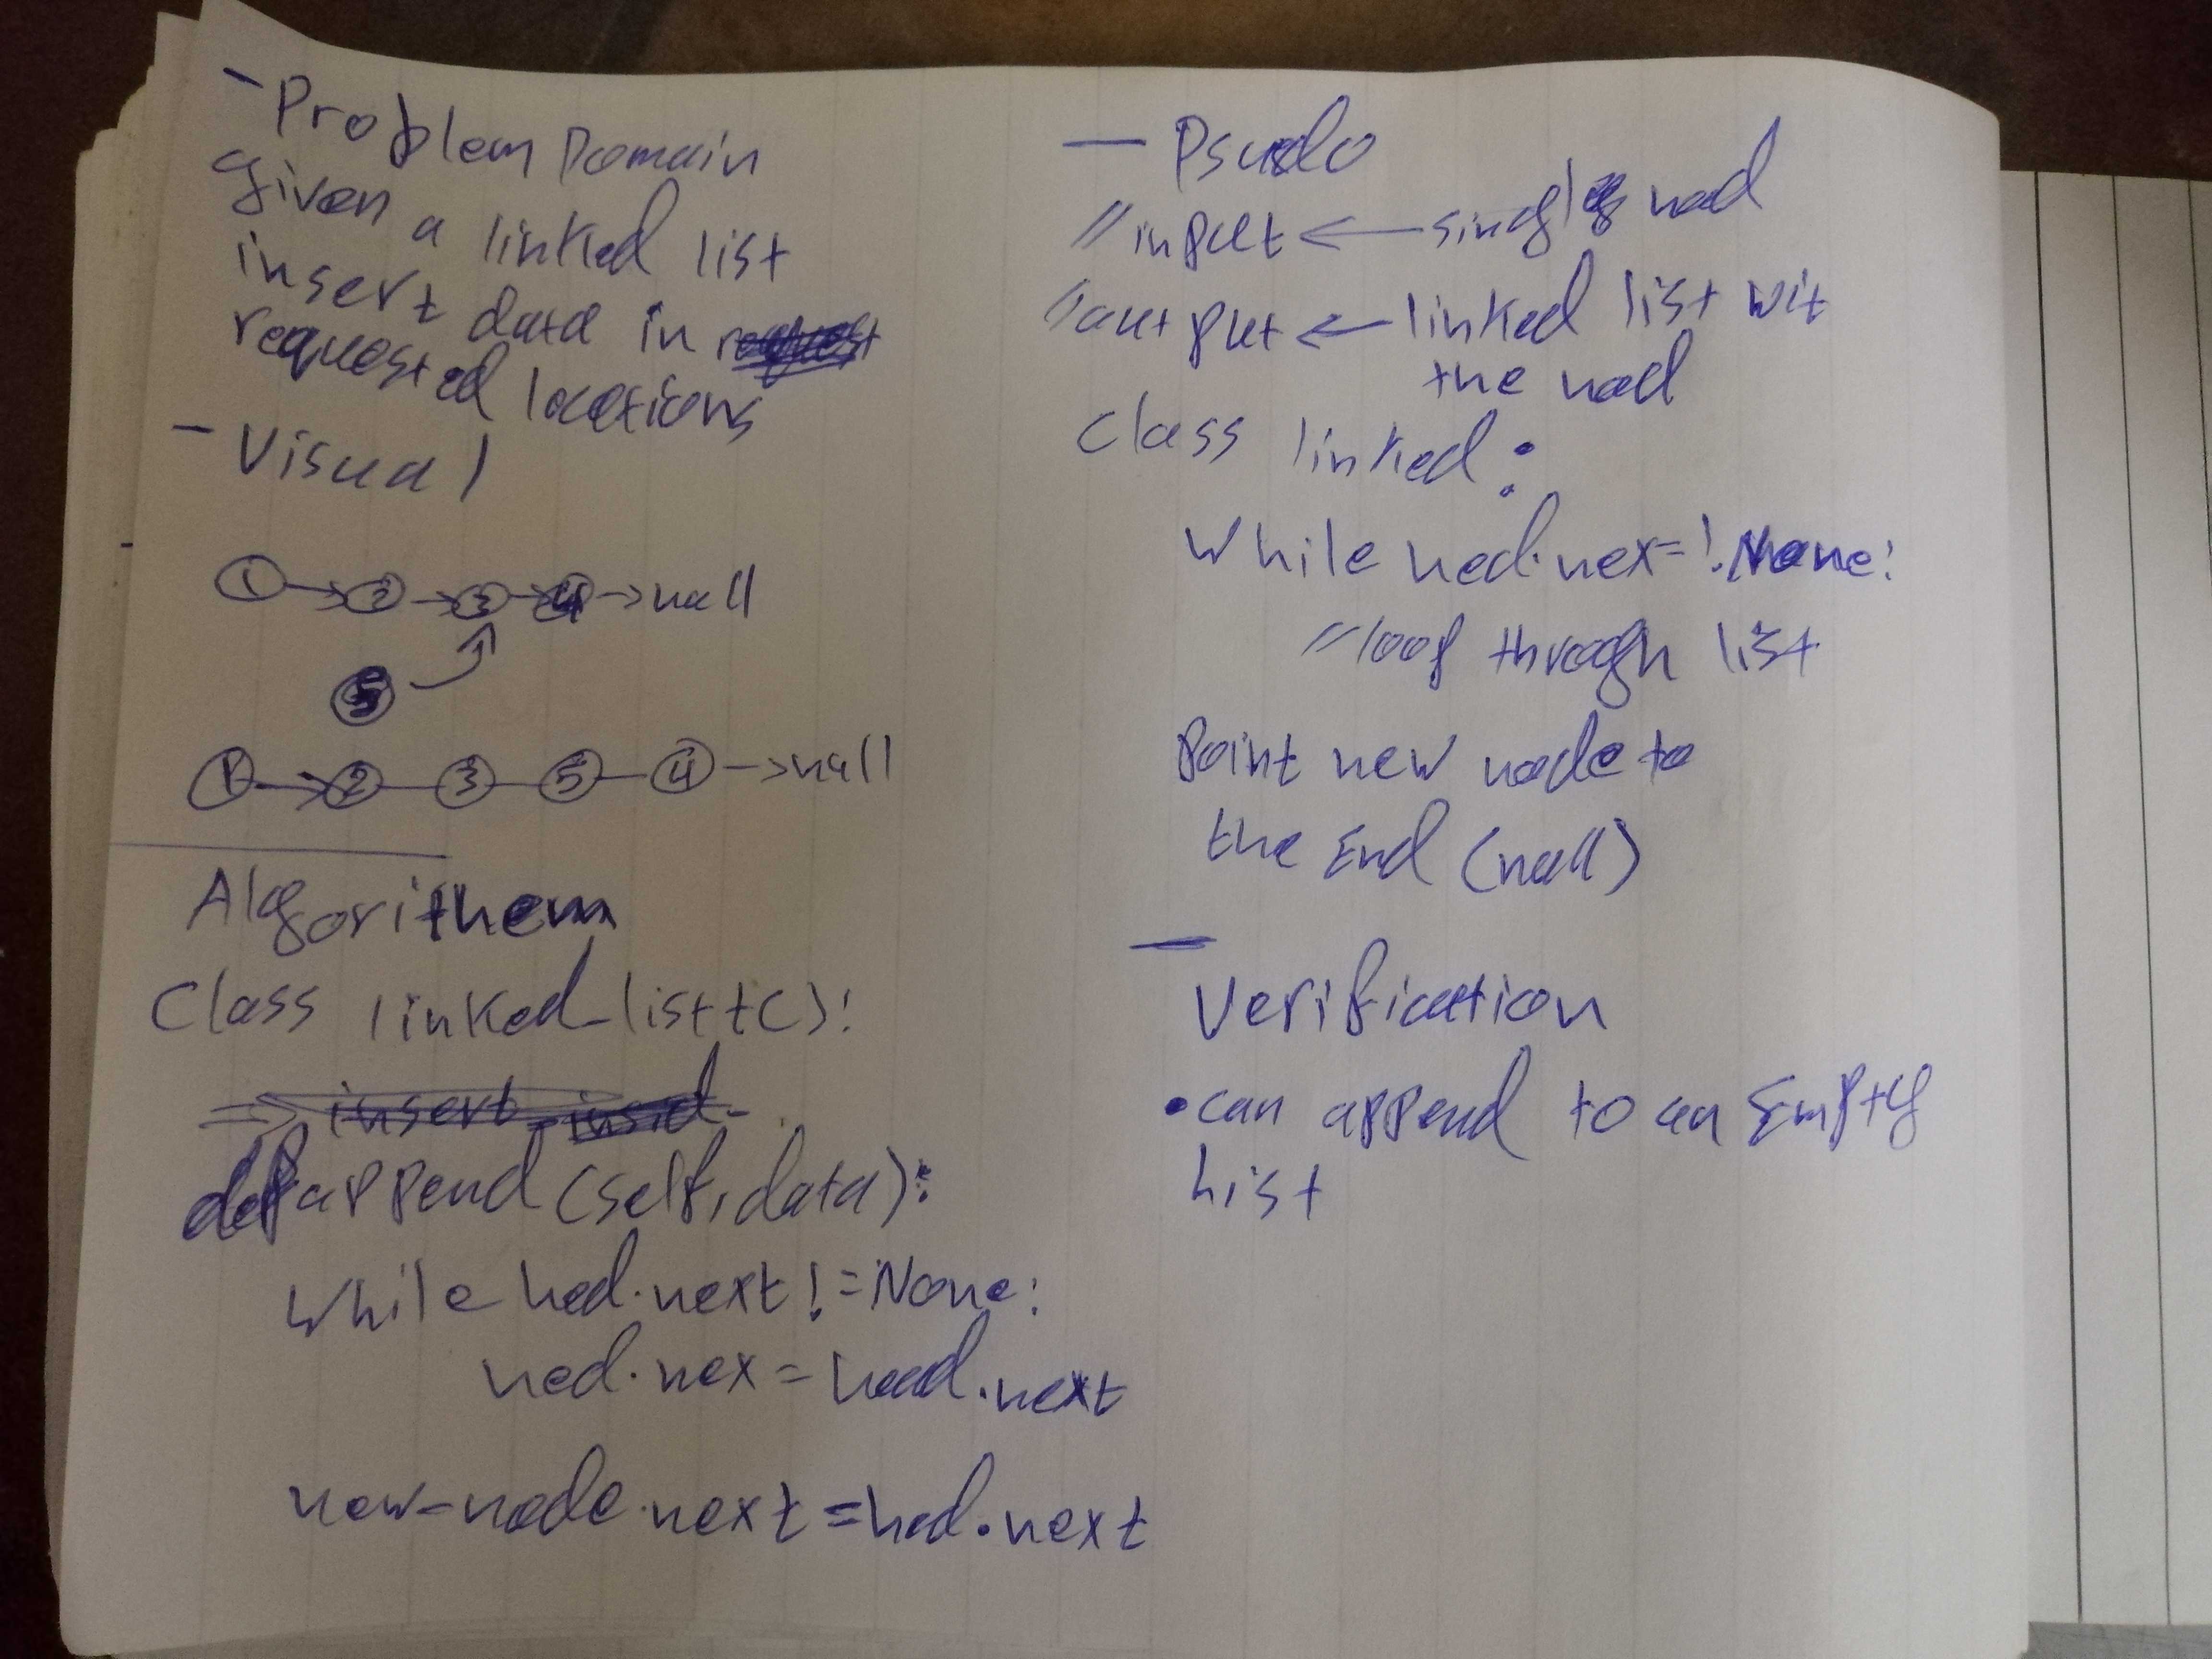 - Problem Domain
given a linked list
insert data in
requested locations
- Visual
1 → 2 → 3 → 4 → null
5
1 → 2 3 5 4 → null
Algorithem
Class linked_listt():
insert
def append (self, data):
while hed.next != None:
hed.nex = head.next
new-node.next = hed.next
- Psudo
// input ← single nod
// output ← linked list wit
the nod
Class linked:
While hed.nex = ! None:
// loop through list
Point new node to
the End (null)
- Verification
• can append to an Empty
list